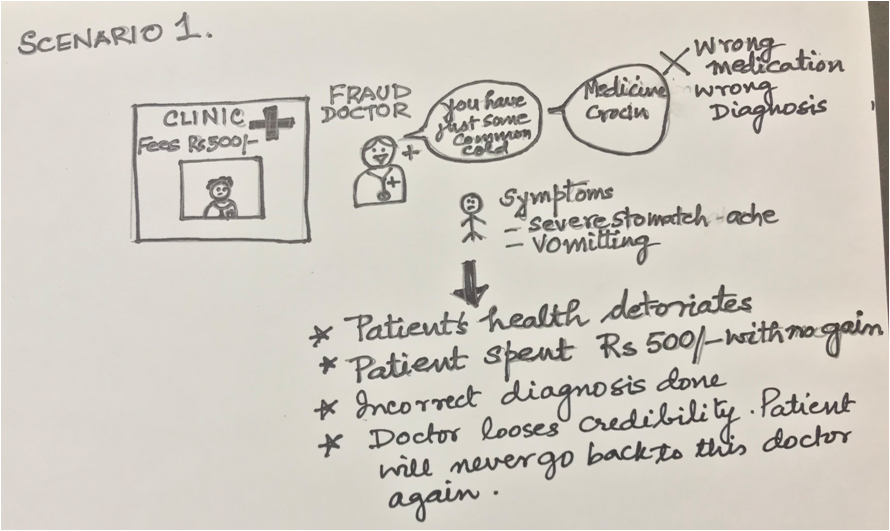 SCENARIO 1.
CLINIC
Fees Rs 500/-
FRAUD
DOCTOR
you have
just some
common
cold
Medicine
Crocin
Wrong
medication
Wrong
Diagnosis
Symptoms
- severe stomatch-ache
- vomitting
* Patient's health detoriates
* Patient spent Rs 500/- with no gain
* Incorrect diagnosis done
* Doctor looses credibility. Patient
will never go back to this doctor
again.